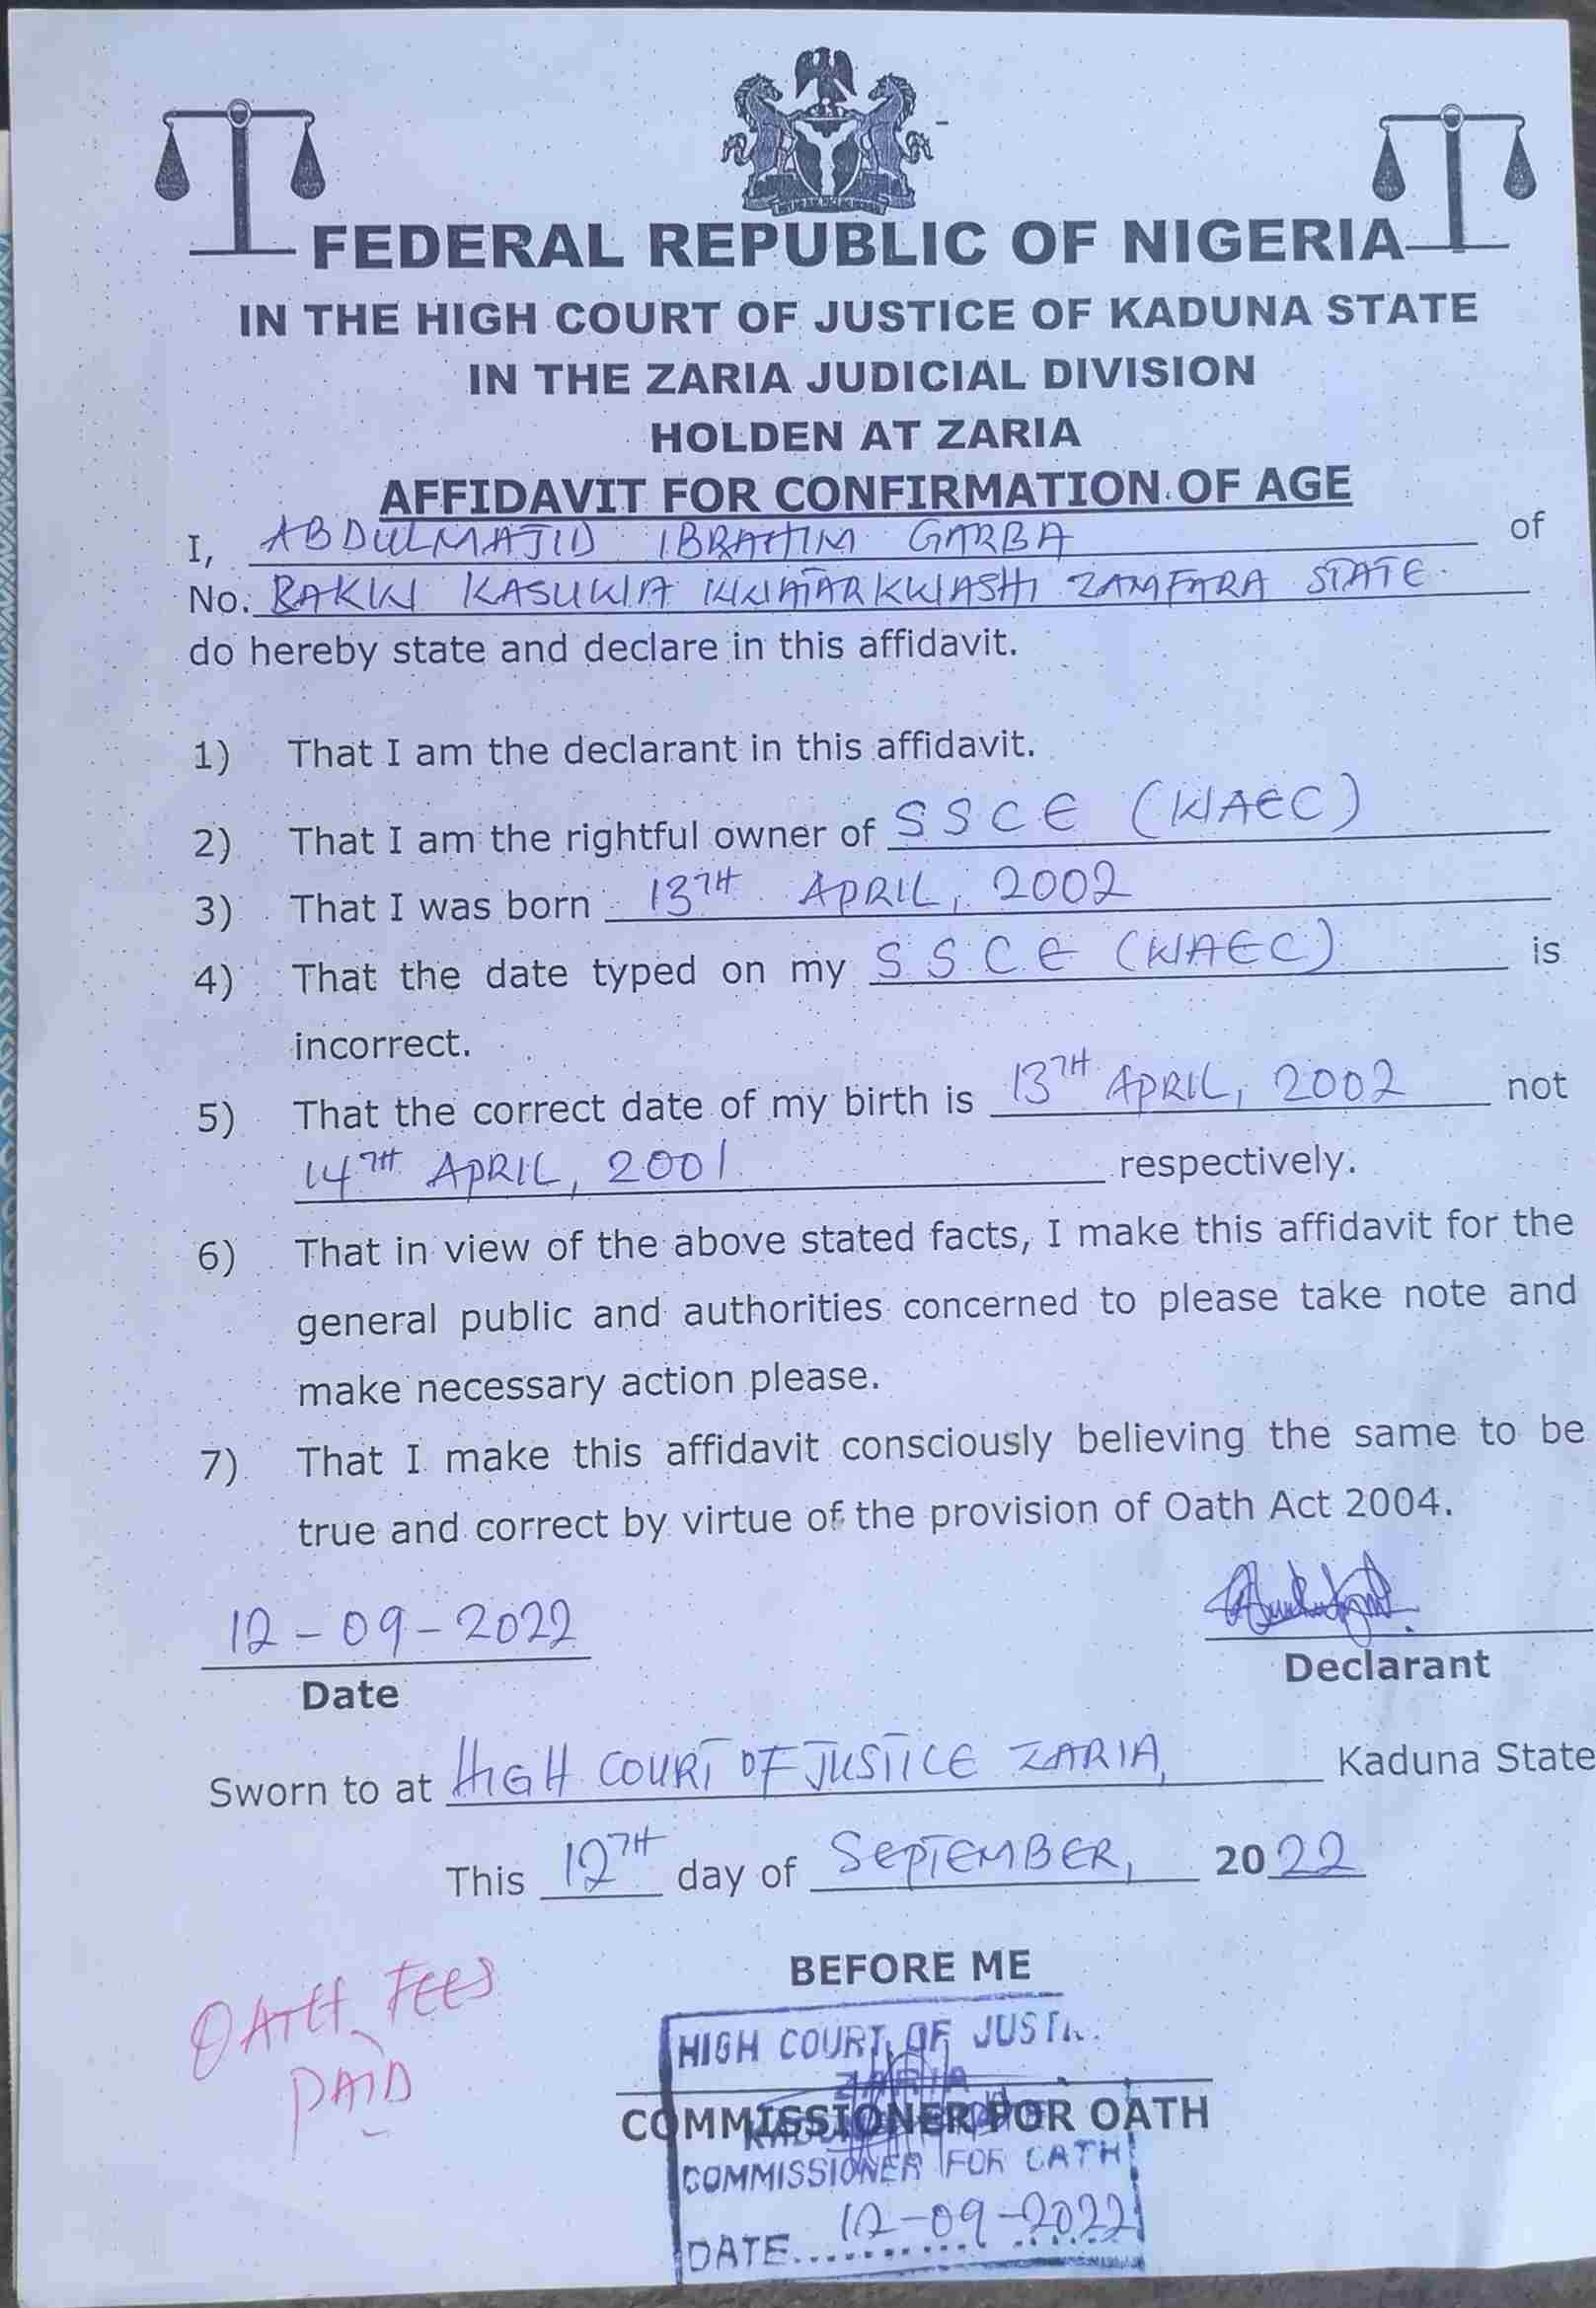 FEDERAL REPUBLIC OF NIGERIA
IN THE HIGH COURT OF JUSTICE OF KADUNA STATE
IN THE ZARIA JUDICIAL DIVISION
HOLDEN AT ZARIA
AFFIDAVIT FOR CONFIRMATION OF AGE
I, ABDULMAJID IBRAHIM GARBA of
No. BAKIN KASUWA KWATARKWASHI ZAMFARA STATE.
do hereby state and declare in this affidavit.
1) That I am the declarant in this affidavit.
2) That I am the rightful owner of SSCE (WAEC)
3) That I was born 13TH APRIL, 2002
4) That the date typed on my S.S.C.E (WAEC) is
incorrect.
5) That the correct date of my birth is 13TH APRIL, 2002 not
14TH APRIL, 2001 respectively.
6) That in view of the above stated facts, I make this affidavit for the
general public and authorities concerned to please take note and
make necessary action please.
7) That I make this affidavit consciously believing the same to be
true and correct by virtue of the provision of Oath Act 2004.
12-09-2022
Date
Declarant
Sworn to at HIGH COURT OF JUSTICE ZARIA, Kaduna State
This 12TH day of SEPTEMBER, 2022
OATH FEES
PAID
BEFORE ME
HIGH COURT OF
ZARIA
COMMISSIONER FOR OATH
COMMISSIONER FOR OATH
DATE 12-09-2022